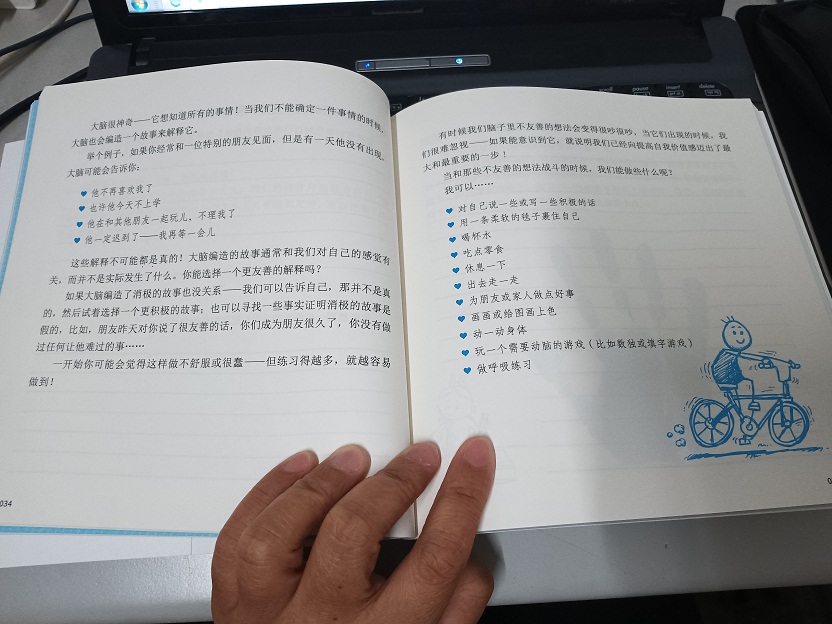 大脑很神奇——它想知道所有的事情！当我们不能确定一件事情的时候，
大脑也会编造一个故事来解释它。
举个例子，如果你经常和一位特别的朋友见面，但是有一天他没有出现，
大脑可能会告诉你：
他不再喜欢我了
也许他今天不上学
他在和其他朋友一起玩儿，不理我了
他一定迟到了——我再等一会儿
这些解释不可能都是真的！大脑编造的故事通常和我们对自己的感觉有
关，而并不是实际发生了什么。你能选择一个更友善的解释吗？
如果大脑编造了消极的故事也没关系——我们可以告诉自己，那并不是真
的，然后试着选择一个更积极的故事；也可以寻找一些事实证明消极的故事是
假的，比如，朋友昨天对你说了很友善的话，你们成为朋友很久了，你没有做
过任何让他难过的事……
一开始你可能会觉得这样做不舒服或很蠢——但练习得越多，就越容易
做到！
034
有时候我们脑子里不友善的想法会变得很吵很吵，当它们出现的时候，我
们很难忽视——如果能意识到它，就说明我们已经向提高自我价值感迈出了最
大和最重要的一步！
当和那些不友善的想法战斗的时候，我们能做些什么呢？
我可以……
对自己说一些或写一些积极的话
用一条柔软的毯子裹住自己
喝杯水
吃点零食
休息一下
出去走一走
为朋友或家人做点好事
画画或给图画上色
动一动身体
玩一个需要动脑的游戏（比如数独或填字游戏）
做呼吸练习
pause
insert
delete